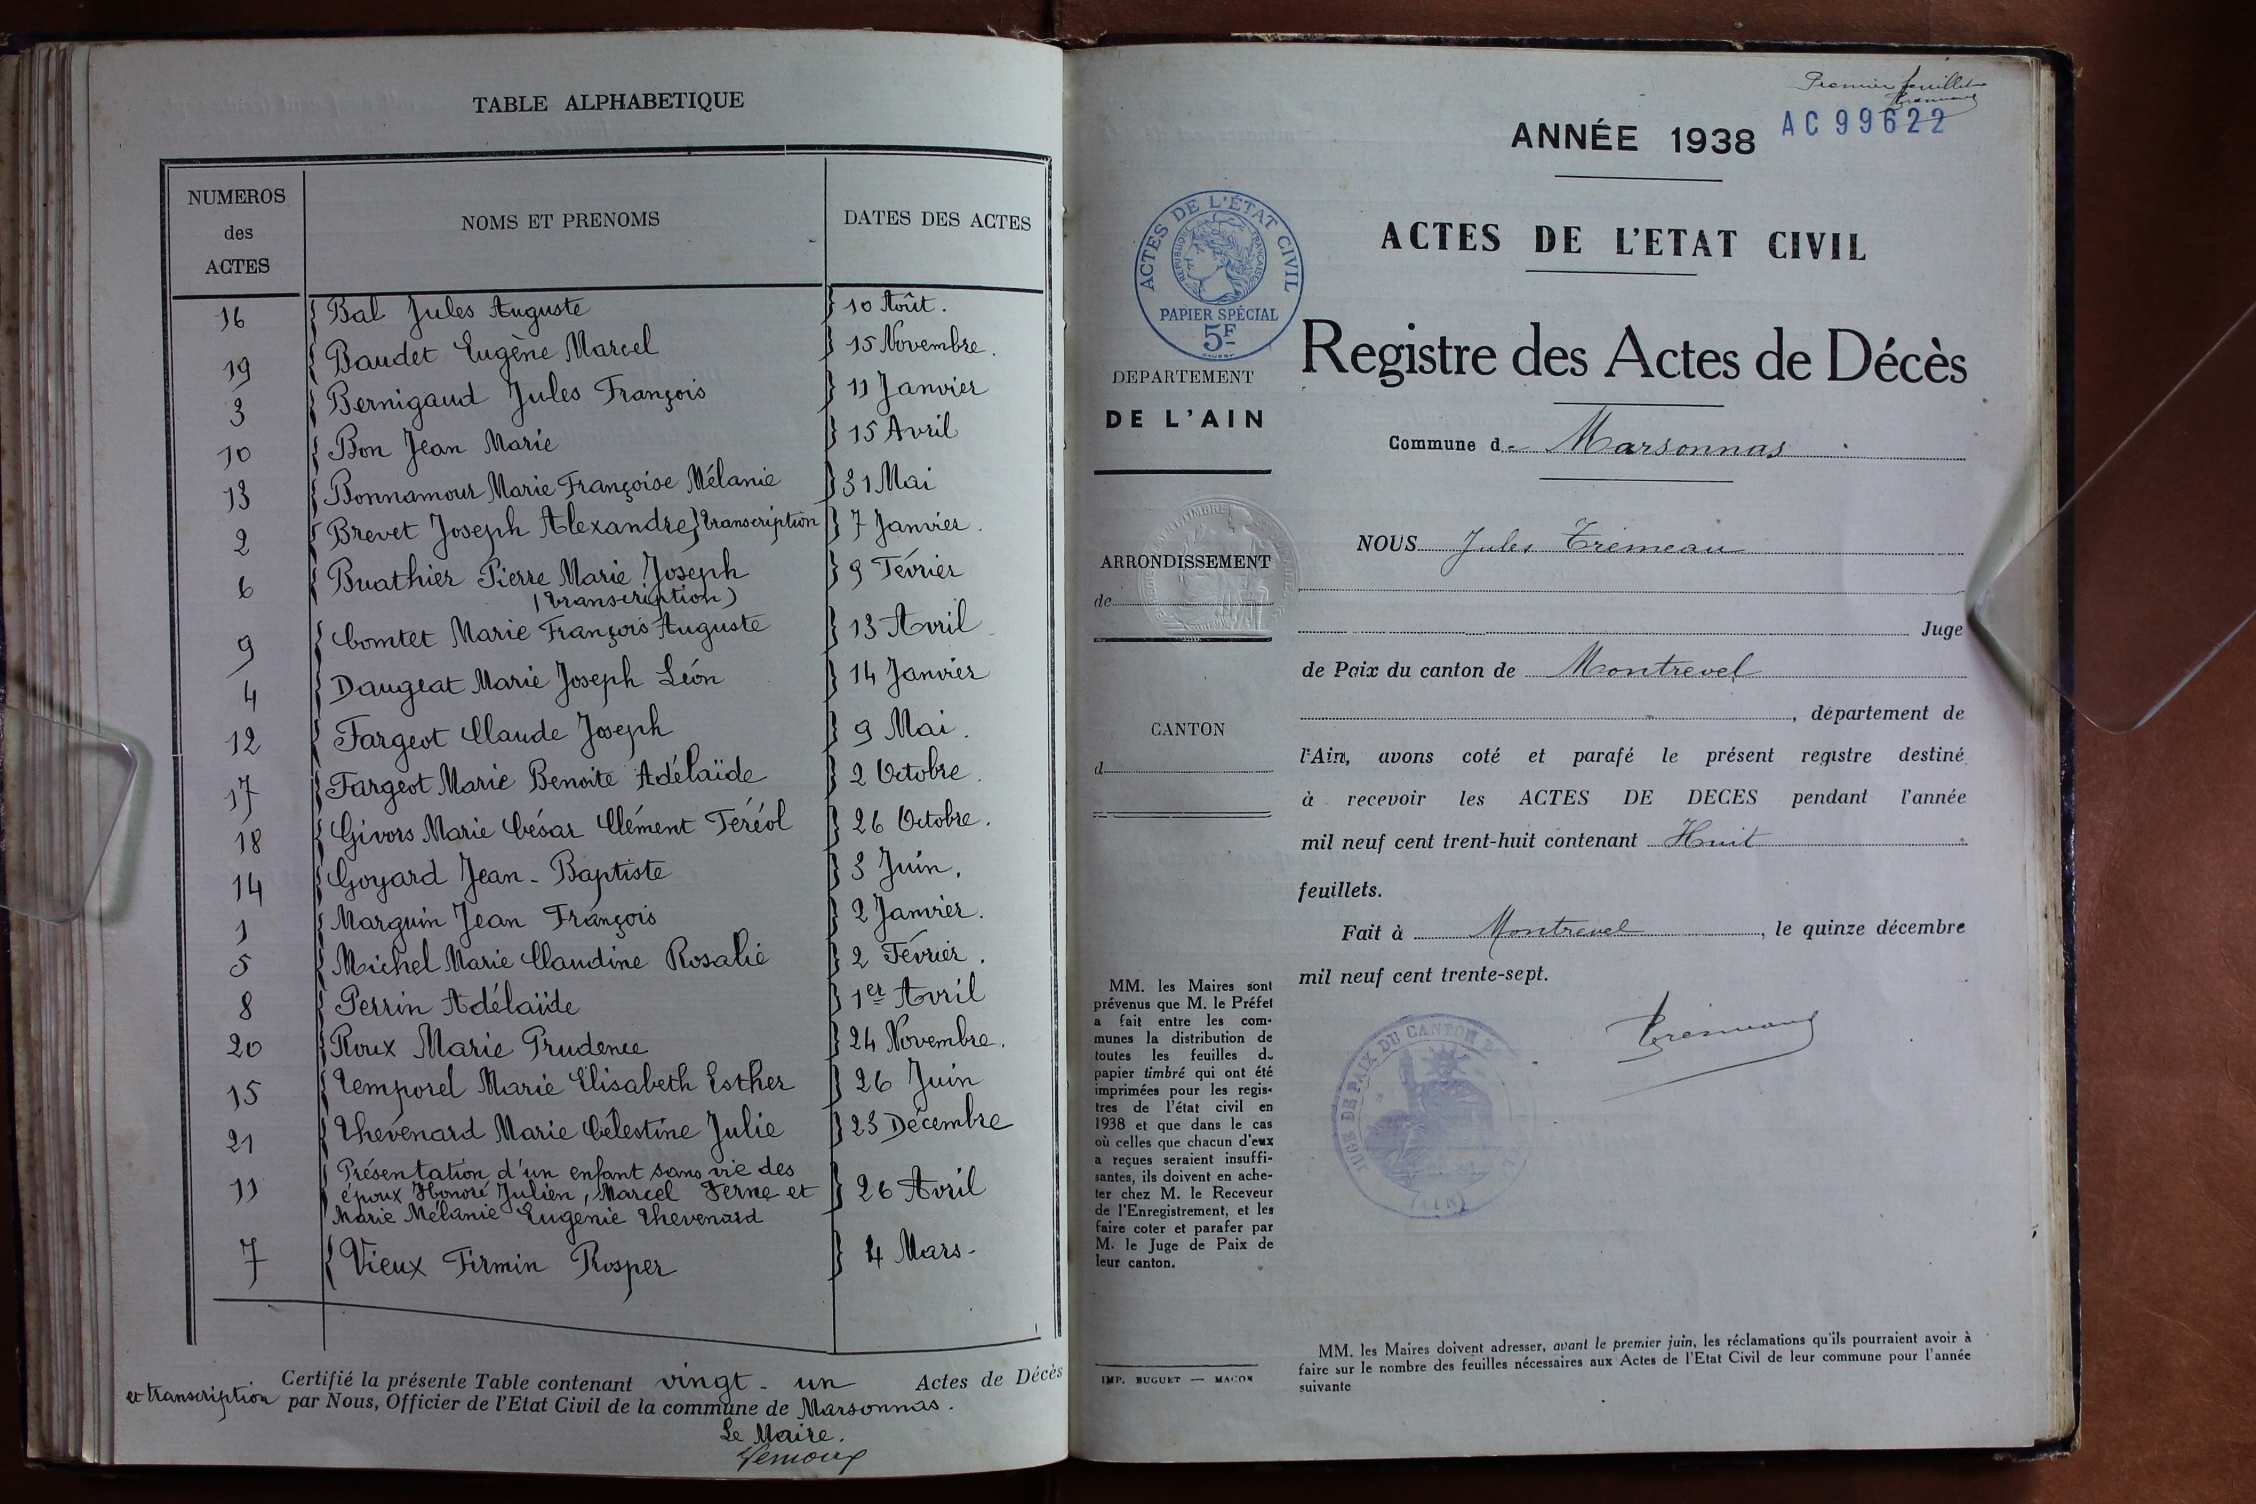 TABLE ALPHABETIQUE
NUMEROS
des
ACTES
NOMS ET PRENOMS
DATES DES ACTES
16 Bal Jules Auguste 10 Août.
19 Baudet Eugène Marcel 15 Novembre.
3 Bernigaud Jules François 11 Janvier
10 Bon Jean Marie 15 Avril
13 Bonnamour Marie Françoise Mélanie 31 Mai
2 Brevet Joseph Alexandre} transcription 7 Janvier.
6 Buathier Pierre Marie Joseph 9 Février
(transcription)
9 Comtet Marie François Auguste 13 Avril
4 Daugeat Marie Joseph Léon 14 Janvier
12 Fargeot Claude Joseph 9 Mai.
17 Fargeot Marie Benoite Adélaïde 2 Octobre.
18 Givors Marie César Clément Féréol 26 Octobre.
14 Goyard Jean-Baptiste 3 Juin.
1 Marguin Jean François 2 Janvier.
5 Michel Marie Claudine Rosalie 2 Février.
8 Perrin Adélaïde 1er Avril
20 Roux Marie Prudence 24 Novembre.
15 Temporel Marie Elisabeth Esther 26 Juin
21 Thevenard Marie Célestine Julie 23 Décembre
Présentation d'un enfant sans vie des
11 époux Honoré Julien, Marcel Ferne et 26 Avril
Marie Mélanie Eugénie Thevenard
7 Vieux Firmin Prosper 4 Mars-
Certifié la présente Table contenant vingt-un Actes de Décès
et transcription par Nous, Officier de l'Etat Civil de la commune de Marsonnas.
Le Maire.
Premier feuillet
AC 99622
ANNÉE 1938
ACTES DE L'ETAT CIVIL
ACTES DE L'ÉTAT CIVIL
RÉPUBLIQUE FRANÇAISE
PAPIER SPÉCIAL
5F
Registre des Actes de Décès
DEPARTEMENT
DE L'AIN
Commune de Marsonnas
NOUS Jules Trémeau
ARRONDISSEMENT
de
Juge
de Paix du canton de Montrevel
, département de
CANTON
d
l'Ain, avons coté et parafé le présent registre destiné
à recevoir les ACTES DE DECES pendant l'année
mil neuf cent trent-huit contenant Huit
feuillets.
Fait à Montrevel, le quinze décembre
mil neuf cent trente-sept.
Trémeau
JUGE DE PAIX DU CANTON D
(AIN)
MM. les Maires sont
prévenus que M. le Préfet
a fait entre les com-
munes la distribution de
toutes les feuilles de
papier timbré qui ont été
imprimées pour les regis-
tres de l'état civil en
1938 et que dans le cas
où celles que chacun d'eux
a reçues seraient insuffi-
santes, ils doivent en ache-
ter chez M. le Receveur
de l'Enregistrement, et les
faire coter et parafer par
M. le Juge de Paix de
leur canton.
IMP. BUGUET — MACON
MM. les Maires doivent adresser, avant le premier juin, les réclamations qu'ils pourraient avoir à
faire sur le nombre des feuilles nécessaires aux Actes de l'Etat Civil de leur commune pour l'année
suivante